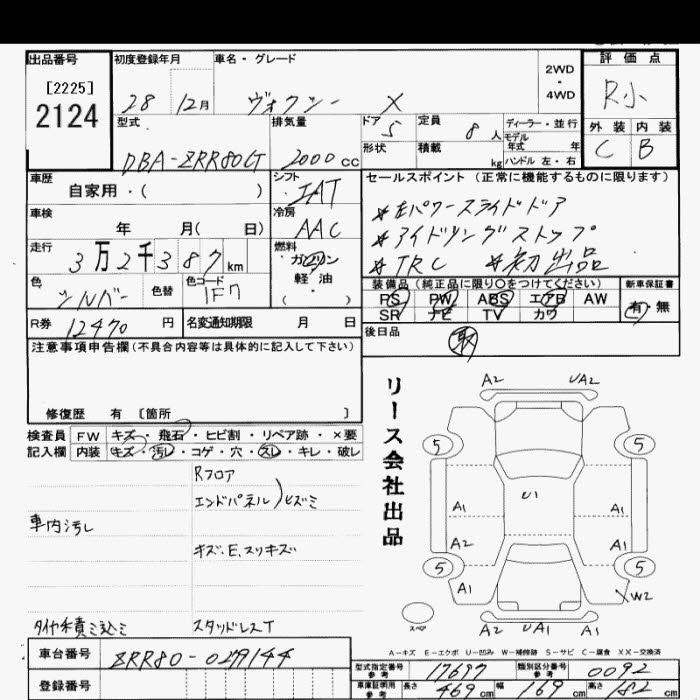 出品番号 初度登録年月 車名・グレード 2WD・4WD 評価点
[2225]
2124
28 12月 ヴォクシー X R小
型式 排気量 ドア 定員 ディーラー・並行 外装 内装
DBA-ZRR80GT 2000cc 5 8人 モデル年式 年 C B
形状 積載 kg ハンドル 左・右
車歴 シフト セールスポイント(正常に機能するものに限ります)
自家用・( ) IAT
*Eパワースライドドア
車検 冷房
年 月( 日) AAC
*アイドリングストップ
走行 燃料
3万2千387km ガソリン
*TRC *初出品
色 色替 色コード 軽油
シルバー 1F7 ( )
装備品(純正品に限り○をつけてください) 新車保証書
PS PW ABS エアB AW 有・無
SR ナビ TV カワ
R券 12470円 名変通知期限 月 日
後日品 取
注意事項申告欄(不具合内容等は具体的に記入して下さい)
修復歴 有 〔箇所 〕
検査員 FW キズ・飛石・ヒビ割・リペア跡・×要
記入欄 内装 キズ・汚レ・コゲ・穴・スレ・キレ・破レ
Rフロア
エンドパネル)ヒズミ
車内汚レ
キズ.E.スリキズ
タイヤ積ミ込ミ スタッドレスT
リース会社出品
A2 UA2
5 5
U1
A1 A1
A2 A1
5 5
A1 XW2
A2 UA1 A1
スペア
A-キズ E-エクボ U-凹み W-補修跡 S-サビ C-腐食 XX-交換済
車台番号 ZRR80-0279144
登録番号
型式指定番号 参考 17697 類別区分番号 参考 0092
車庫証明用 参考 長さ 469cm 幅 169cm 高さ 182cm